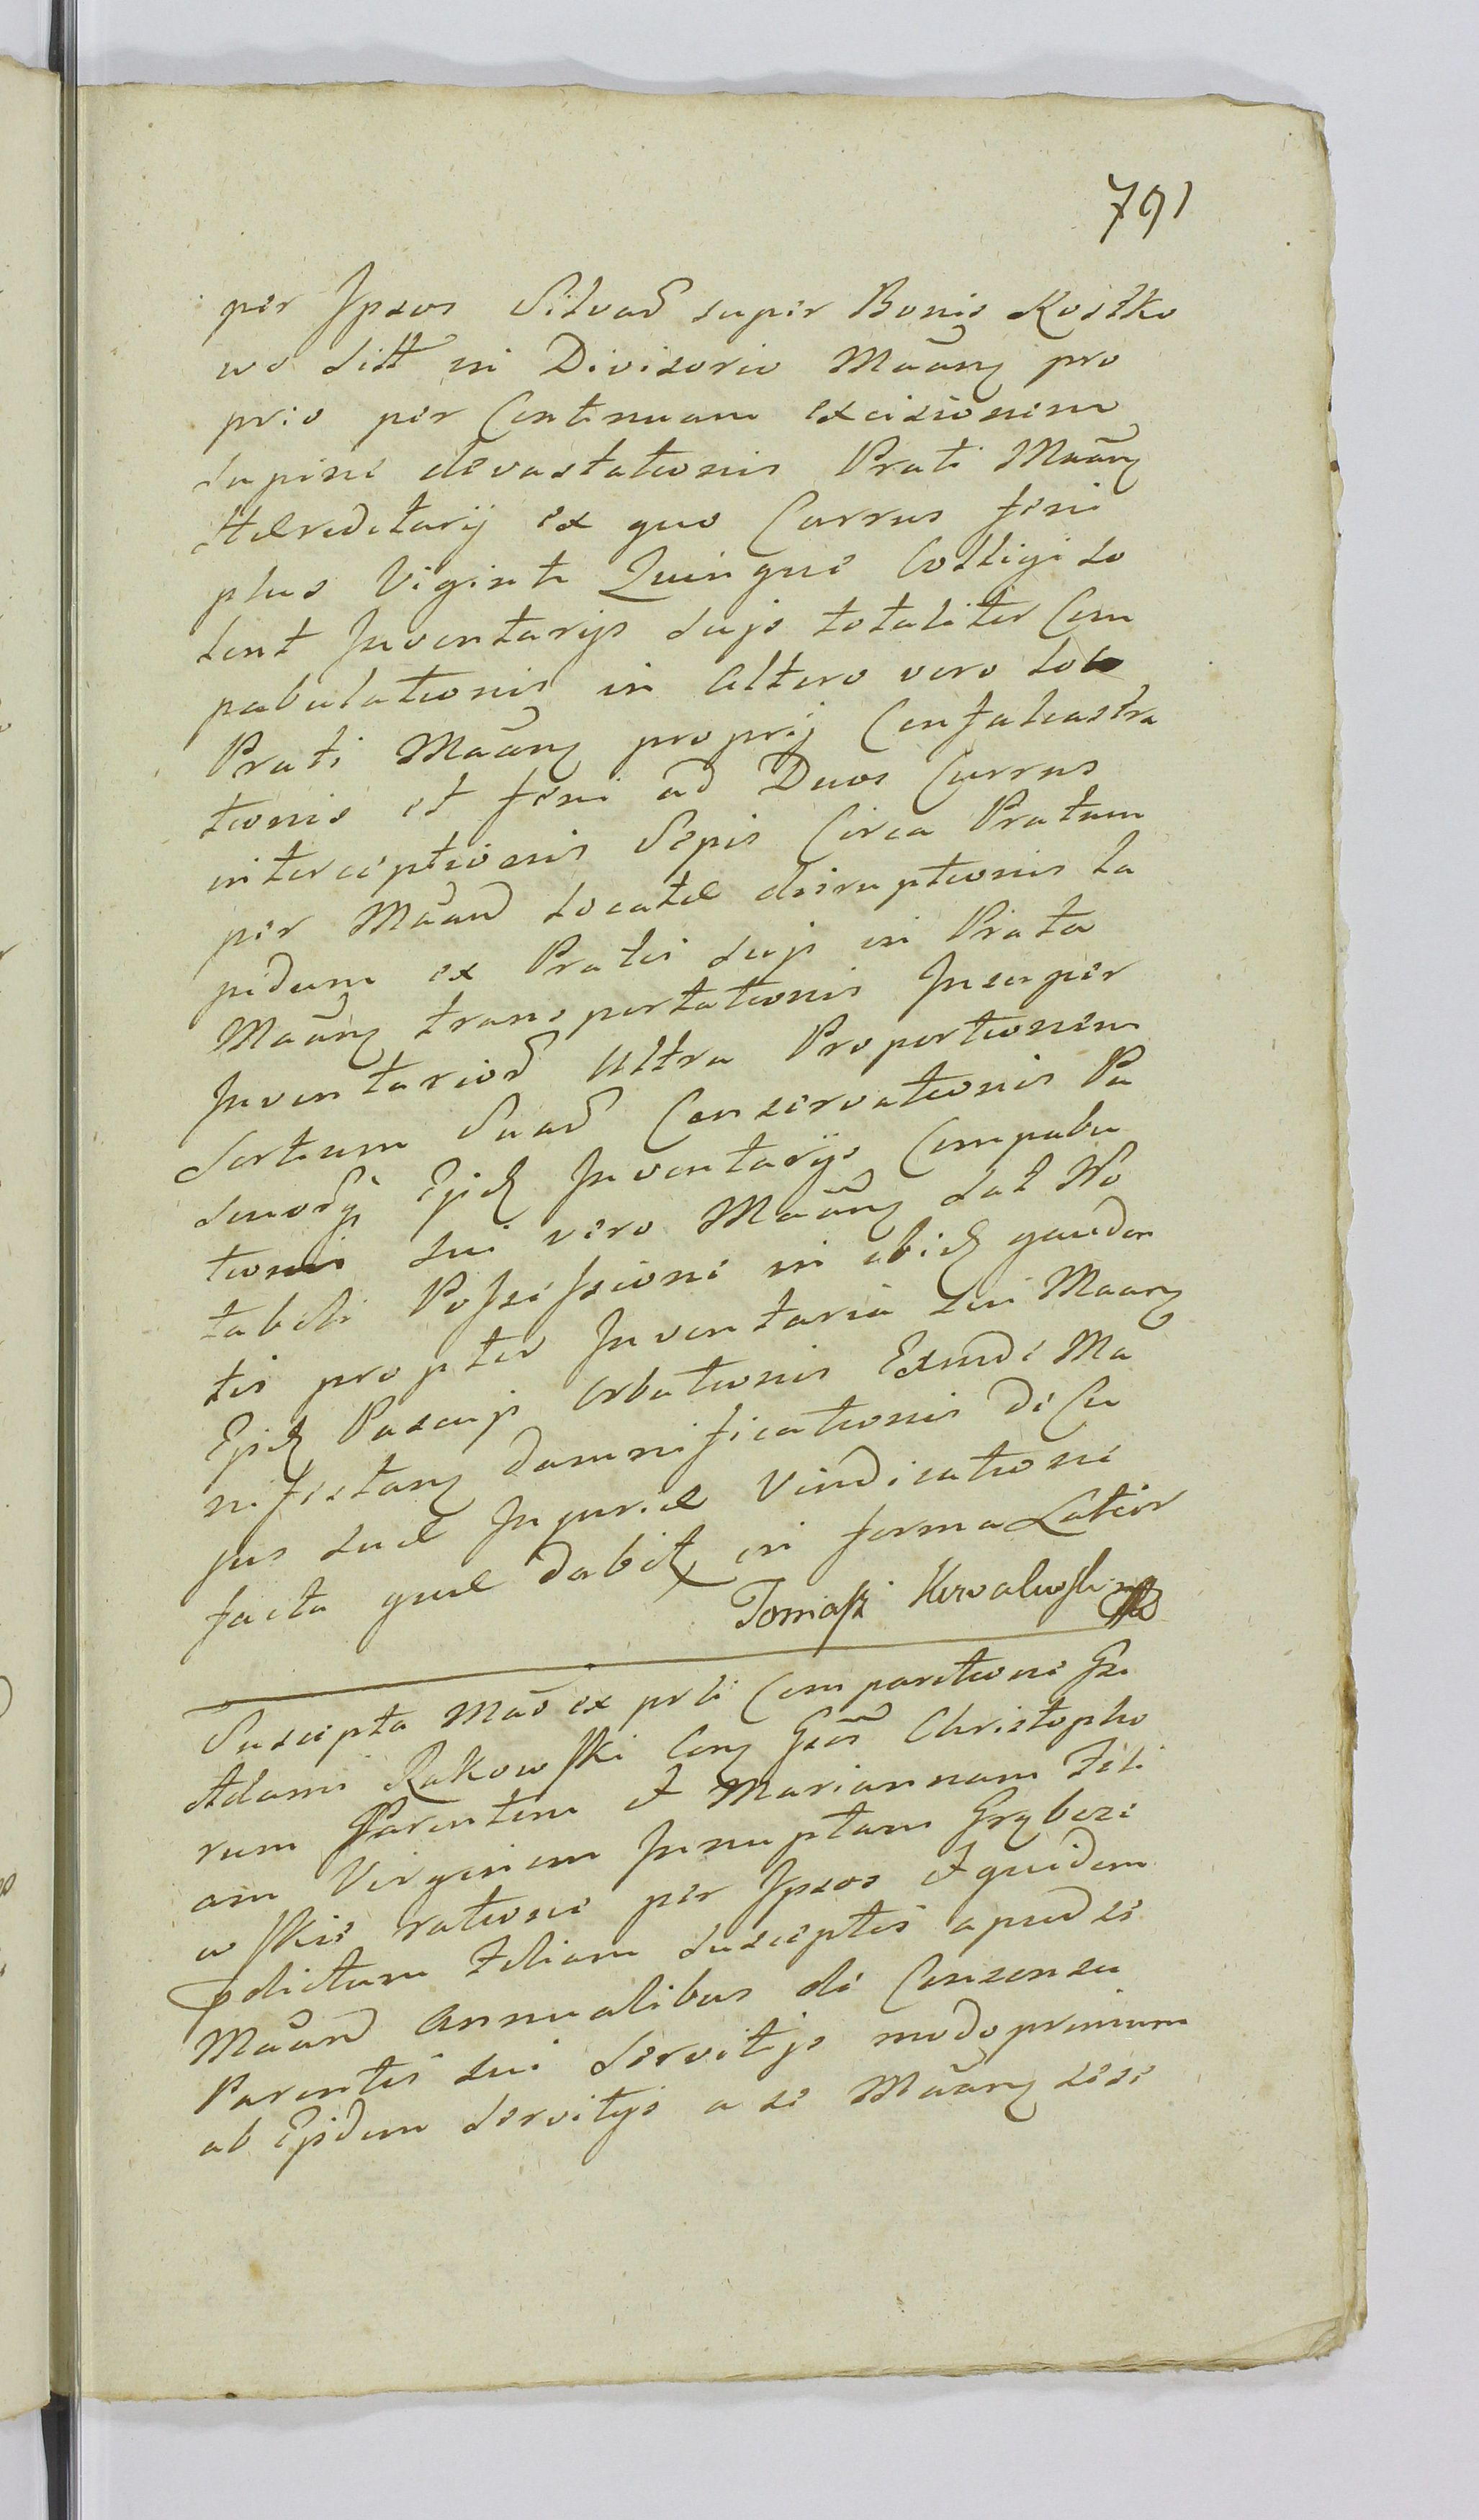 791
per Ipsos Silvað super Bonis Kostko
wo sitt in Divisorio Mãanꝫ pro
prio per Continuam excisionem
supine devastationis Prati Mãanꝫ
Hæreditarij ex quo Currus feni
plus Viginti Quinque Colligi so
lent Inventarijs suis totaliter Com
pabulationis in altero vero loco
Prati Mãanꝫ proprij Confalcastra
tionis et feni ad Duos Currus
interceptionis Sepis Circa Pratum
per Mãand locatæ disruptionis la
pidum ex Pratis suis in Prata
Mãanꝫ transportationis Insuper
Inventariorũ Ultra Proportionem
Sortium Suarũ Conservationis Pa
scuorũ Ejusd Inventarijs Compabu
tionis sui vero Mãanꝫ dat No
tabili Possessione in ibidꝫ gauden
tis propter Inventaria sui Maanꝫ
Ejusdꝫ Pascuis Orbationis Exinde Ma
nifestanꝫ damnificationis de Cu
jus suæ Injuriæ Vindicatione
facta quæ dabitꝫ in forma Latior
Tomasz Kowalewski mp
Suscepta Mãd ex prti Comparitione Gsi
Adami Rakowski Conꝫ Gsos Christopho
rum Parentem et Mariannam Fili
am Virginem Innuptam Grzybczi
wskie ratione per Ipsos et quidem
pdictam Filiam susceptis apud se
Mãand Annualibus de Consensu
Parentis sui Servitijs modo primum
ab Ejsdem Servitijs a se Mãanꝫ sese